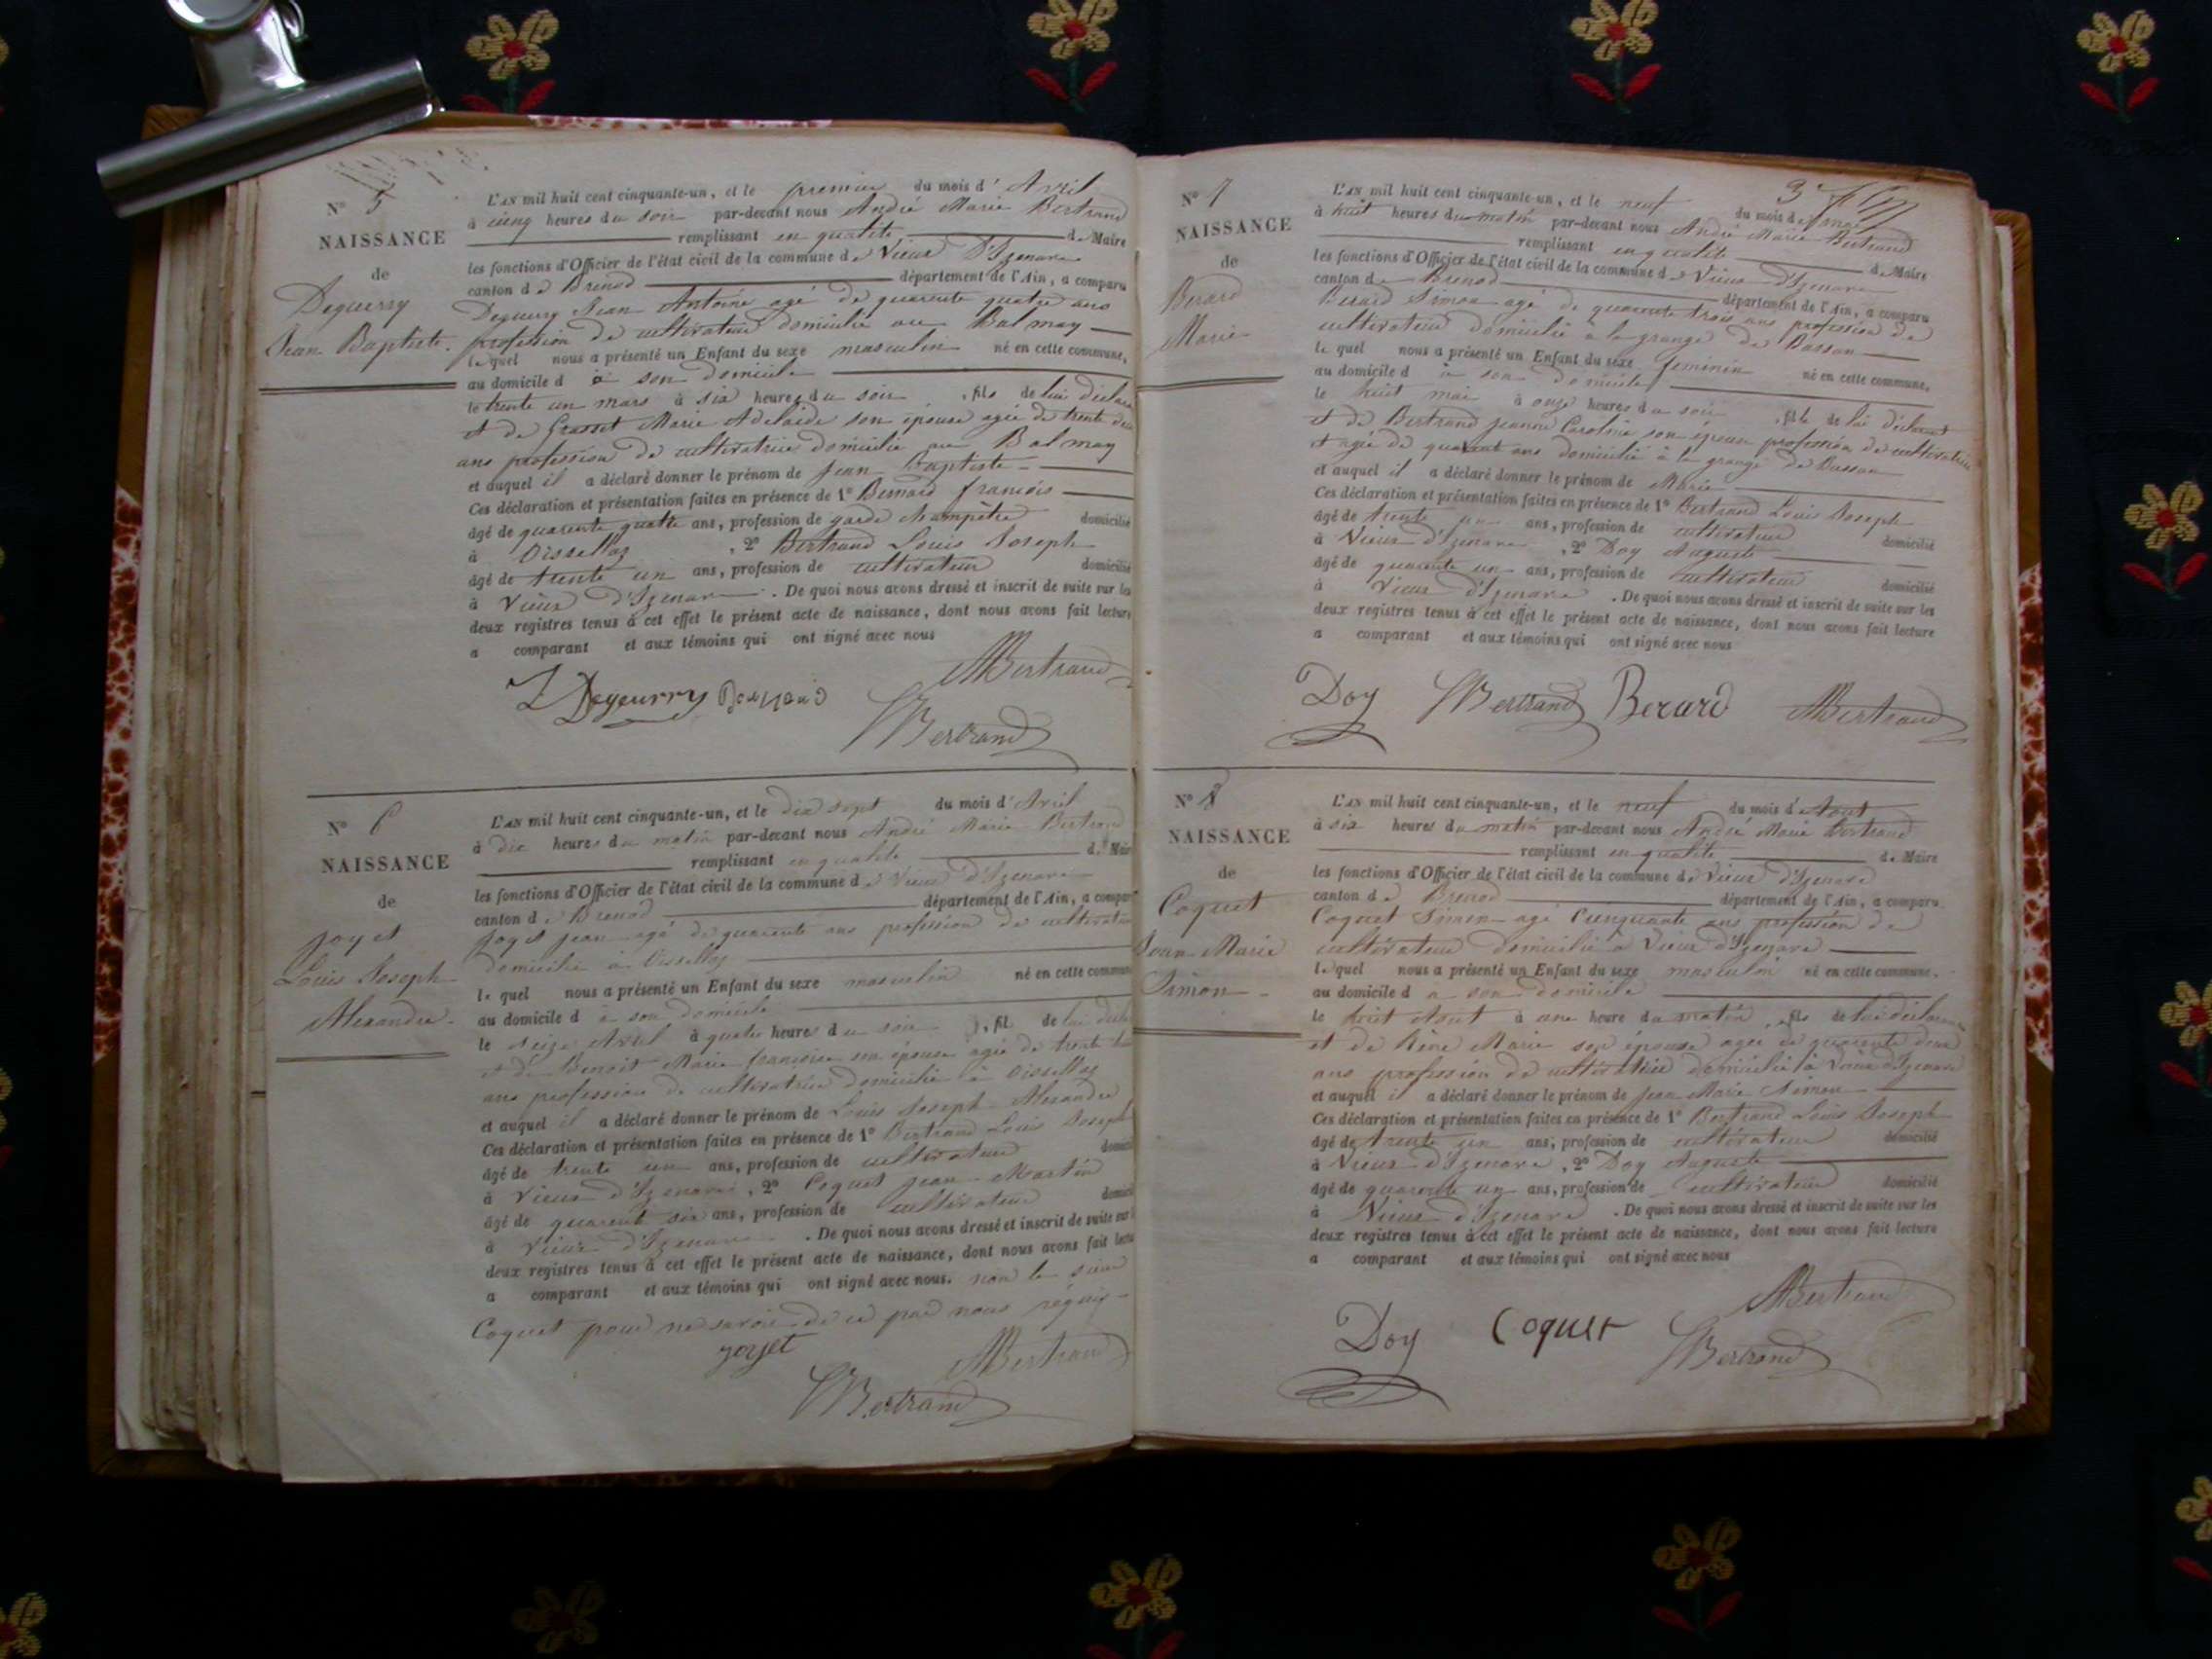 N° 5
NAISSANCE
de
Deguerry
Jean Baptiste.
L'AN mil huit cent cinquante-un, et le premier du mois d'Avril
à cinq heures du soir par-devant nous André Marie Bertrand
remplissant en qualité de Maire
les fonctions d'Officier de l'état civil de la commune de Vieux D'Izenave
canton de Brenod département de l'Ain, a comparu
Deguerry Jean Antoine agé de quarente quatre ans
profession de cultivateur domicilié au Balmay
lequel nous a présenté un Enfant du sexe masculin né en cette commune,
au domicile d à son domicile
le trente un mars à six heures du soir, fils de lui déclarant
et de Grasset Marie Adelaide son épouse agée de trente
ans profession de cultivatrice domicilié au Balmay
et auquel il a déclaré donner le prénom de Jean Baptiste
Ces déclaration et présentation faites en présence de 1° Bernard françois
âgé de quarente quatre ans, profession de garde champêtre domicilié
à Oisselaz, 2° Bertrand Louis Joseph
âgé de trente un ans, profession de cultivateur domicilié
à Vieux d'Izenave. De quoi nous avons dressé et inscrit de suite sur les
deux registres tenus à cet effet le présent acte de naissance, dont nous avons fait lecture
a comparant et aux témoins qui ont signé avec nous
Degeurry Bernard AMBertrand
LBertrand
N° 6
NAISSANCE
de
Joyet
Louis Joseph
Alexandre.
L'AN mil huit cent cinquante-un, et le dix sept du mois d'Avril
à dix heures du matin par-devant nous André Marie Bertrand
remplissant en qualité de Maire
les fonctions d'Officier de l'état civil de la commune de Vieux d'Izenave
canton de Brenod département de l'Ain, a comparu
Joyet Jean agé de quarente ans profession de cultivateur
domicilié à Oisselaz
lequel nous a présenté un Enfant du sexe masculin né en cette commune
au domicile d à son domicile
le seize Avril à quatre heures du soir, fil de lui
et de Benoit Marie françoise son épouse agée de trente
ans profession de cultivatrice domicilié à Oisselaz
et auquel il a déclaré donner le prénom de Louis Joseph Alexandre
Ces déclaration et présentation faites en présence de 1° Bertrand Louis Joseph
âgé de trente un ans, profession de cultivateur domicilié
à Vieux d'Izenave, 2° Coquet Jean Martin
âgé de quarente six ans, profession de cultivateur domicilié
à Vieux d'Izenave. De quoi nous avons dressé et inscrit de suite sur
deux registres tenus à cet effet le présent acte de naissance, dont nous avons fait lecture
a comparant et aux témoins qui ont signé avec nous. non le sieur
Coquet pour ne savoir de ce par nous réquis
joyet AMBertrand
LBertrand
N° 7
NAISSANCE
de
Berard
Marie
3
L'AN mil huit cent cinquante-un, et le neuf du mois de
à huit heures du matin par-devant nous André Marie Bertrand
remplissant en qualité de Maire
les fonctions d'Officier de l'état civil de la commune de Vieux d'Izenave
canton de Brenod département de l'Ain, a comparu
Berard Simon agé de quarente trois ans profession de
cultivateur domicilié à la grange de Bassan
lequel nous a présenté un Enfant du sexe feminin né en cette commune,
au domicile d à son domicile
le huit mai à onze heures du soir, fille de lui déclarant
et de Bertrand Jeanne Caroline son épouse profession de cultivatrice
et agée de quarente ans domicilié à la grange de Bassan
et auquel il a déclaré donner le prénom de Marie
Ces déclaration et présentation faites en présence de 1° Bertrand Louis Joseph
âgé de trente un ans, profession de cultivateur domicilié
à Vieux d'Izenave, 2° Doy Auguste
âgé de quarente un ans, profession de cultivateur domicilié
à Vieux d'Izenave. De quoi nous avons dressé et inscrit de suite sur les
deux registres tenus à cet effet le présent acte de naissance, dont nous avons fait lecture
a comparant et aux témoins qui ont signé avec nous
Doy LBertrand Berard AMBertrand
N° 8
NAISSANCE
de
Coquet
Jean Marie
Simon
L'AN mil huit cent cinquante-un, et le neuf du mois d'Aout
à six heures du matin par-devant nous André Marie Bertrand
remplissant en qualité de Maire
les fonctions d'Officier de l'état civil de la commune de Vieux d'Izenave
canton de Brenod département de l'Ain, a comparu
Coquet Simon agé Cinquante ans profession de
cultivateur domicilié à Vieux d'Izenave
lequel nous a présenté un Enfant du sexe masculin né en cette commune.
au domicile d à son domicile
le huit Aout à une heure du matin, fils de lui déclarant
et de Rène Marie son épouse agée de quarente deux
ans profession de cultivatrice domicilié à Vieux d'Izenave
et auquel il a déclaré donner le prénom de Jean Marie Simon
Ces déclaration et présentation faites en présence de 1° Bertrand Louis Joseph
âgé de trente un ans, profession de cultivateur domicilié
à Vieux d'Izenave, 2° Doy Auguste
âgé de quarente un ans, profession de cultivateur domicilié
à Vieux d'Izenave. De quoi nous avons dressé et inscrit de suite sur les
deux registres tenus à cet effet le présent acte de naissance, dont nous avons fait lecture
a comparant et aux témoins qui ont signé avec nous
AMBertrand
Doy Coquet LBertrand